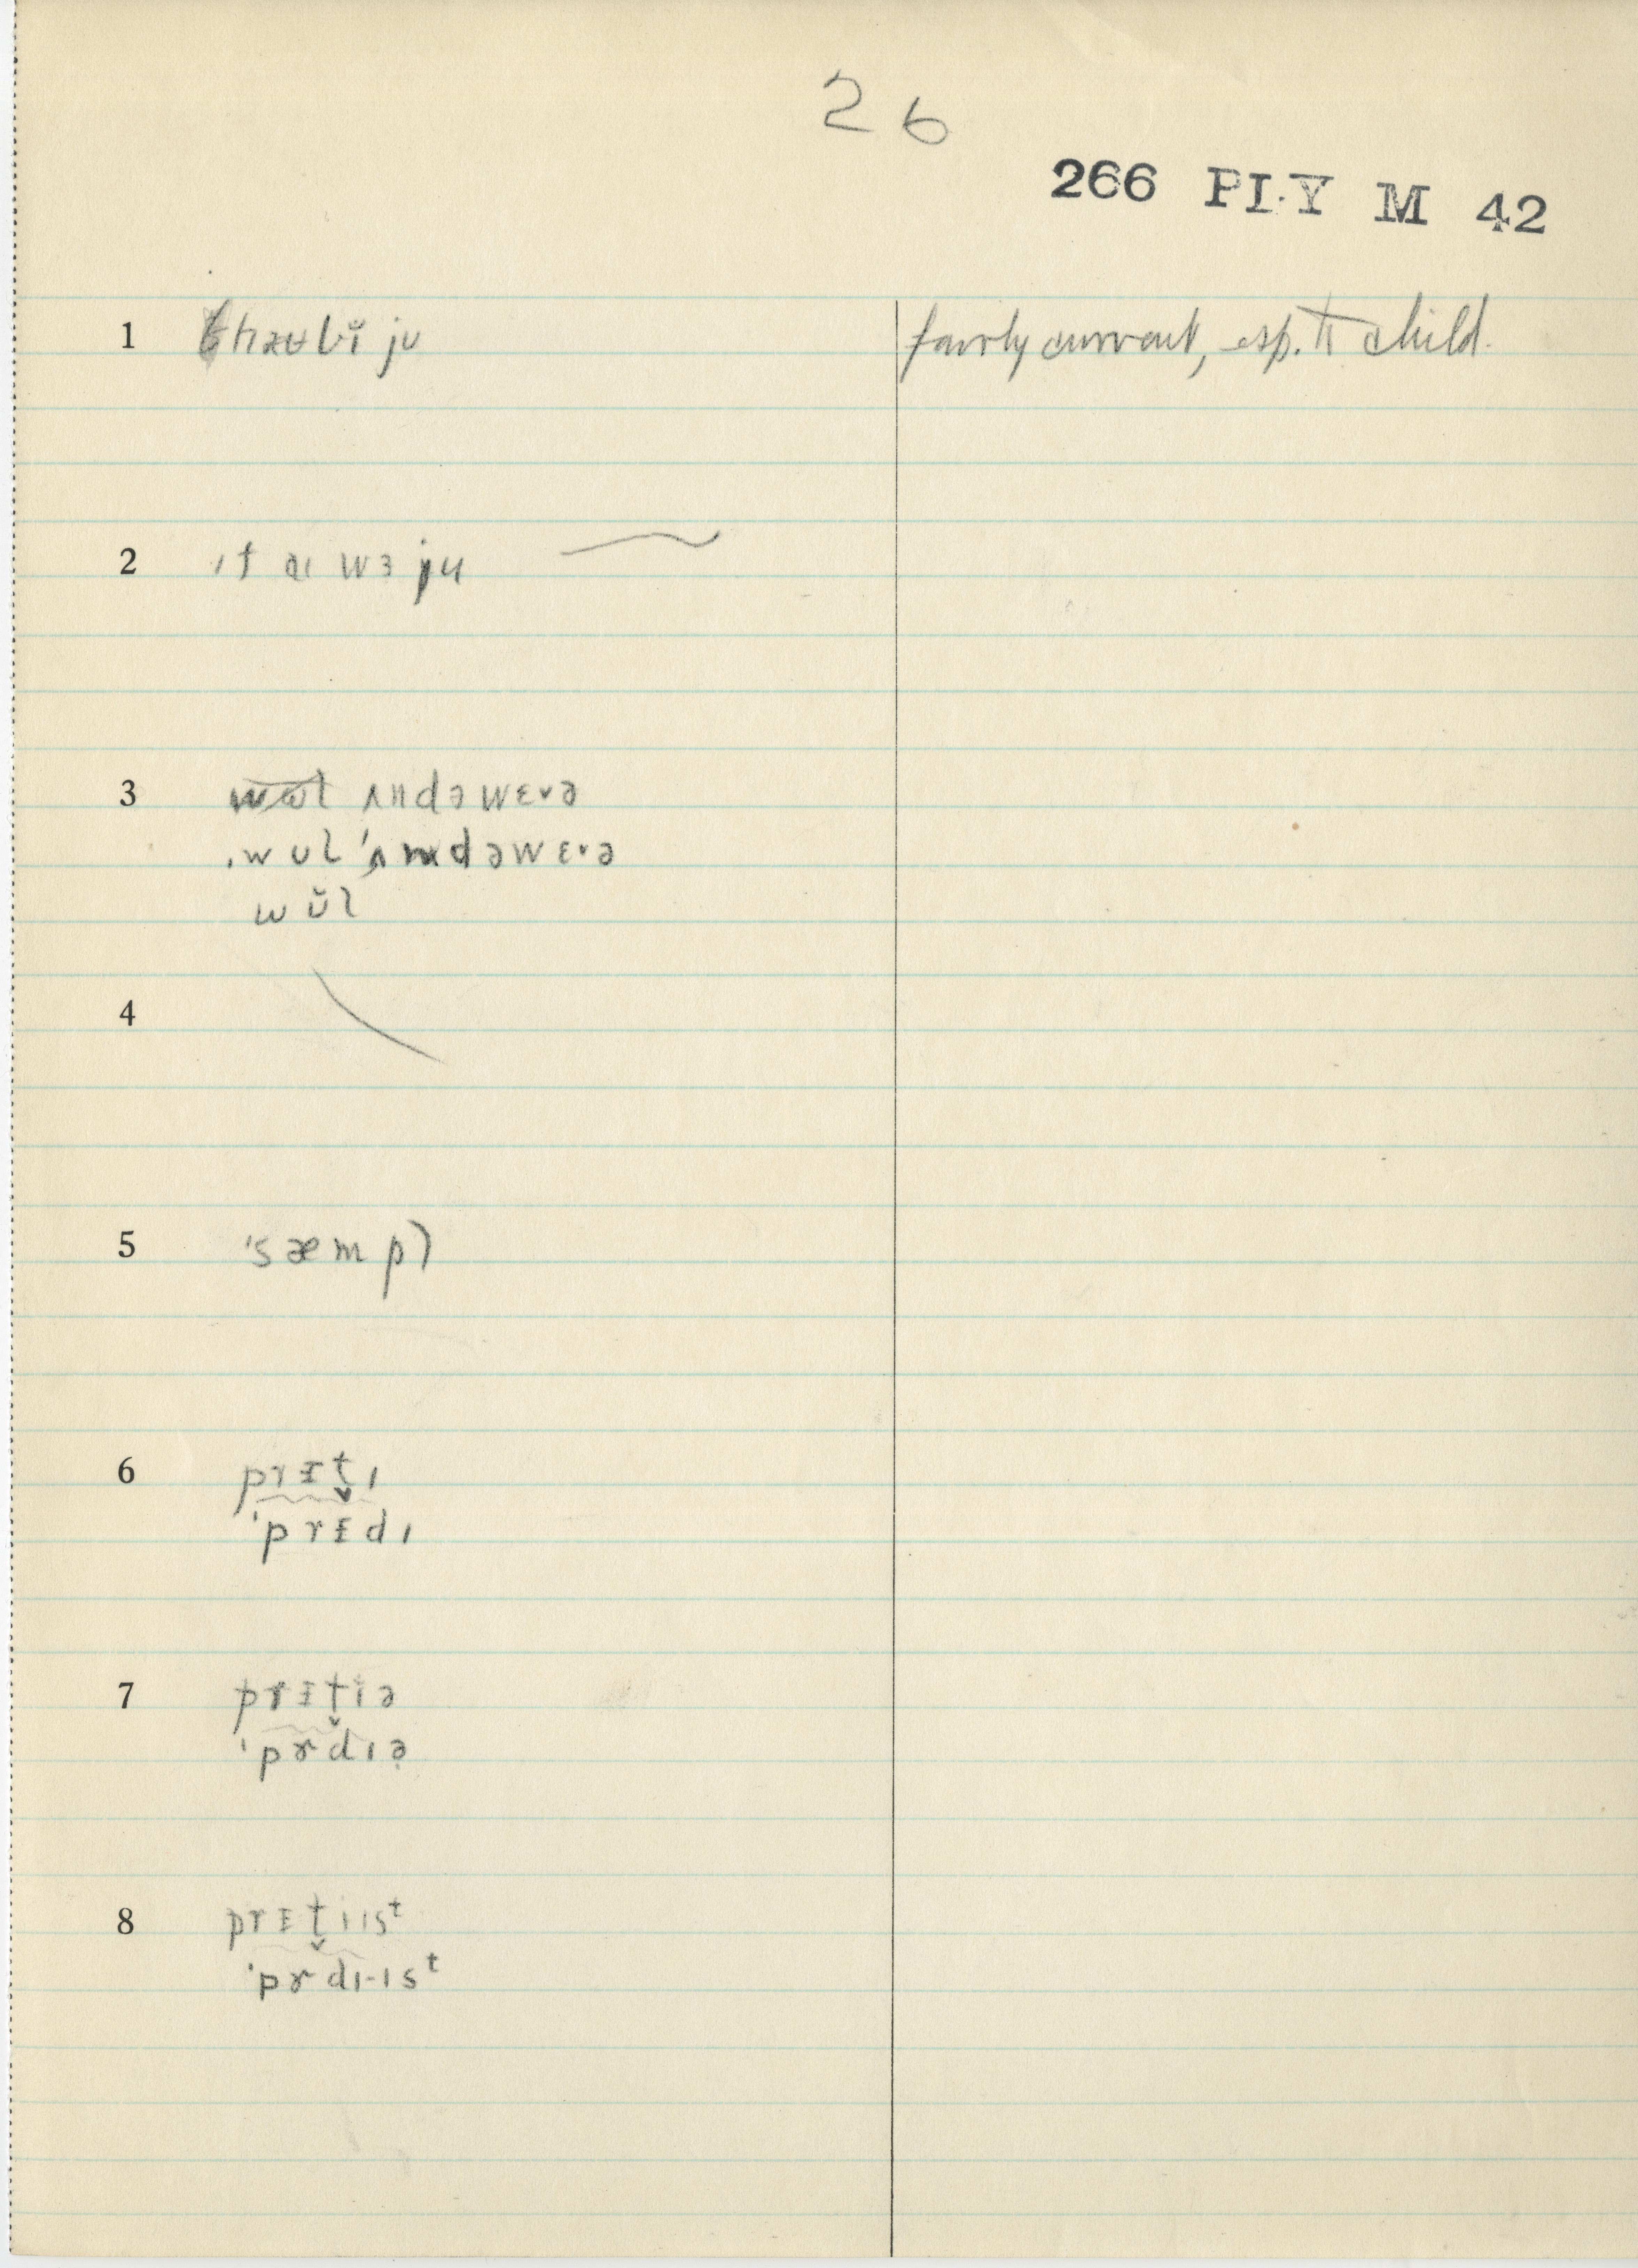 26
266 PLY M 42
1 fairly current, esp. to child.
2 ɪf aɪ wɜ ju
3 ʌndəwɛvə
wul ˈʌndəwɛvə
wŭl
4
5 ˈsæmpl
6 prɪt̬ɪ
ˈprɪdɪ
7 prɪt̬iə
ˈprdɪə
8 prɪt̬iɪsᵗ
ˈprdɪ-ɪsᵗ